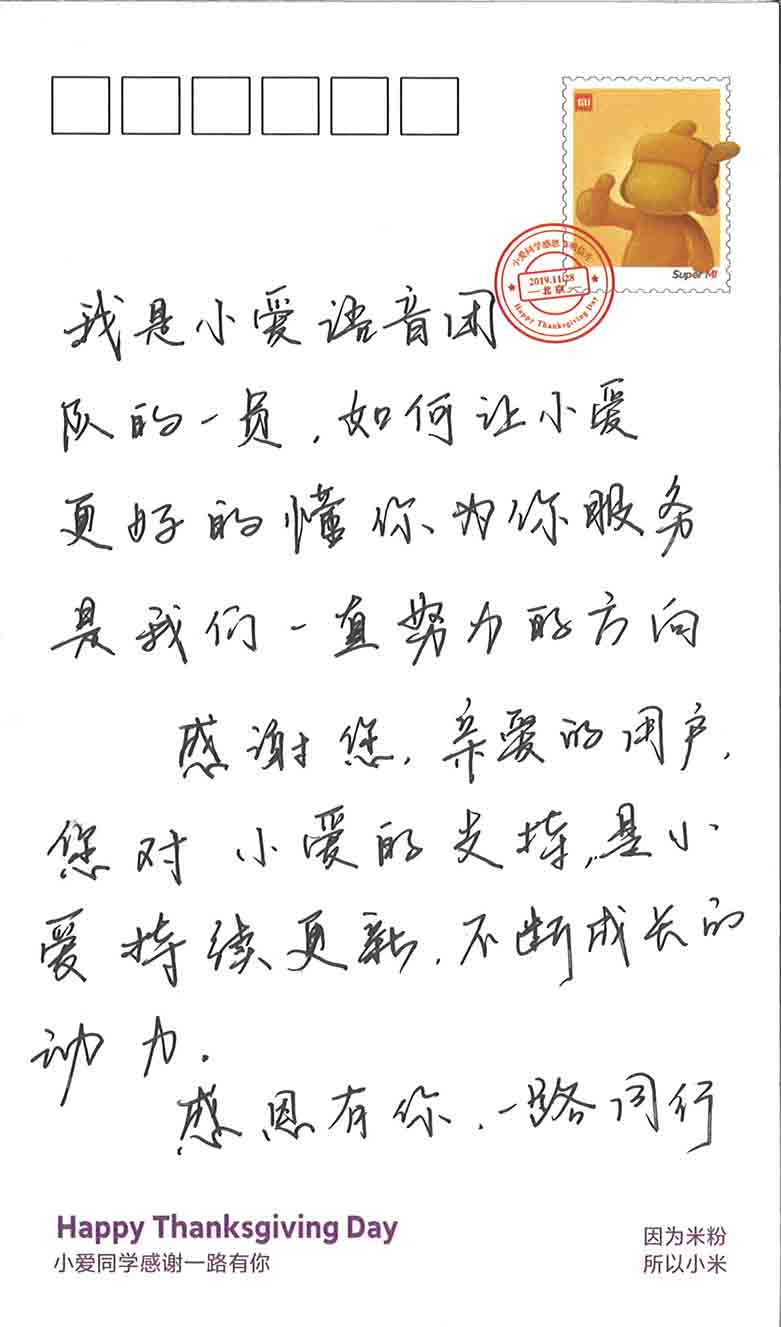 MI
Super MI
2019.11.28
北京
Happy Thanksgiving Day
我是小爱语音团
队的一员，如何让小爱
更好的懂你、为你服务
是我们一直努力的方向
感谢您，亲爱的用户，
您对小爱的支持，是小
爱持续更新，不断成长的
动力。
感恩有你，一路同行
Happy Thanksgiving Day
小爱同学感谢一路有你
因为米粉
所以小米